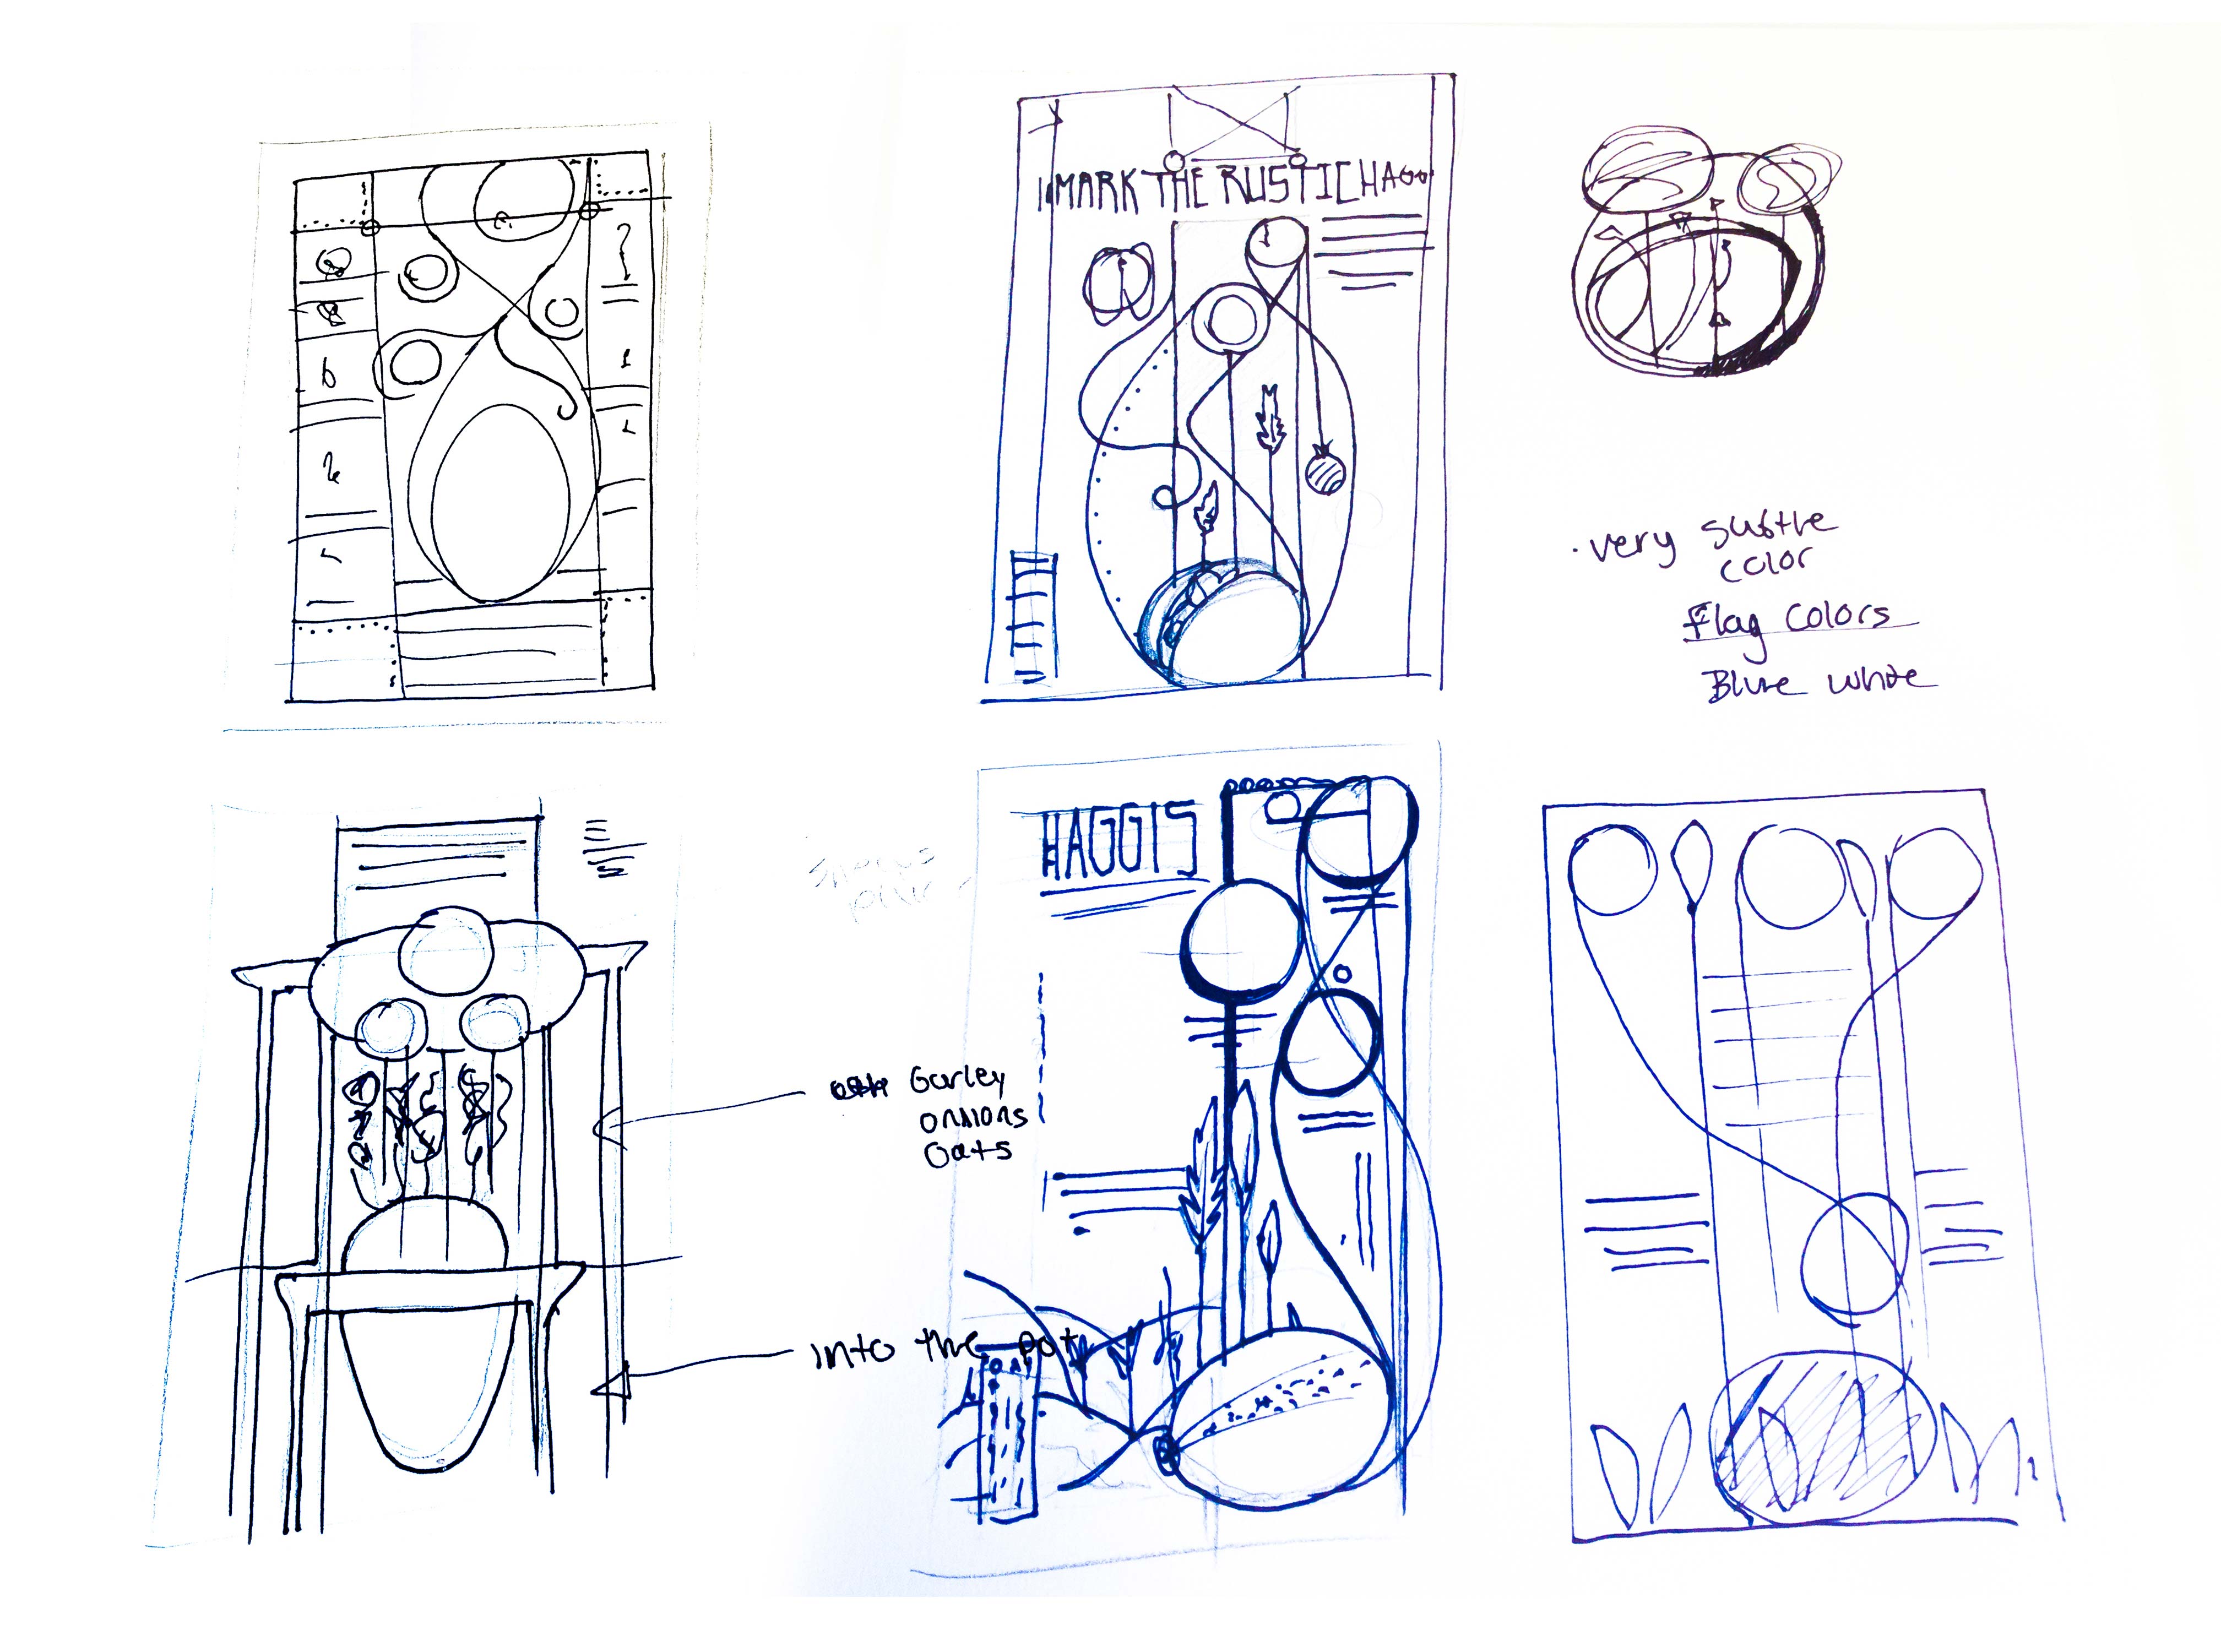 MARK THE RUSTIC HAGG
very subtle
color
Flag colors
Blue white
HAGGIS
onions
oats
into the pot